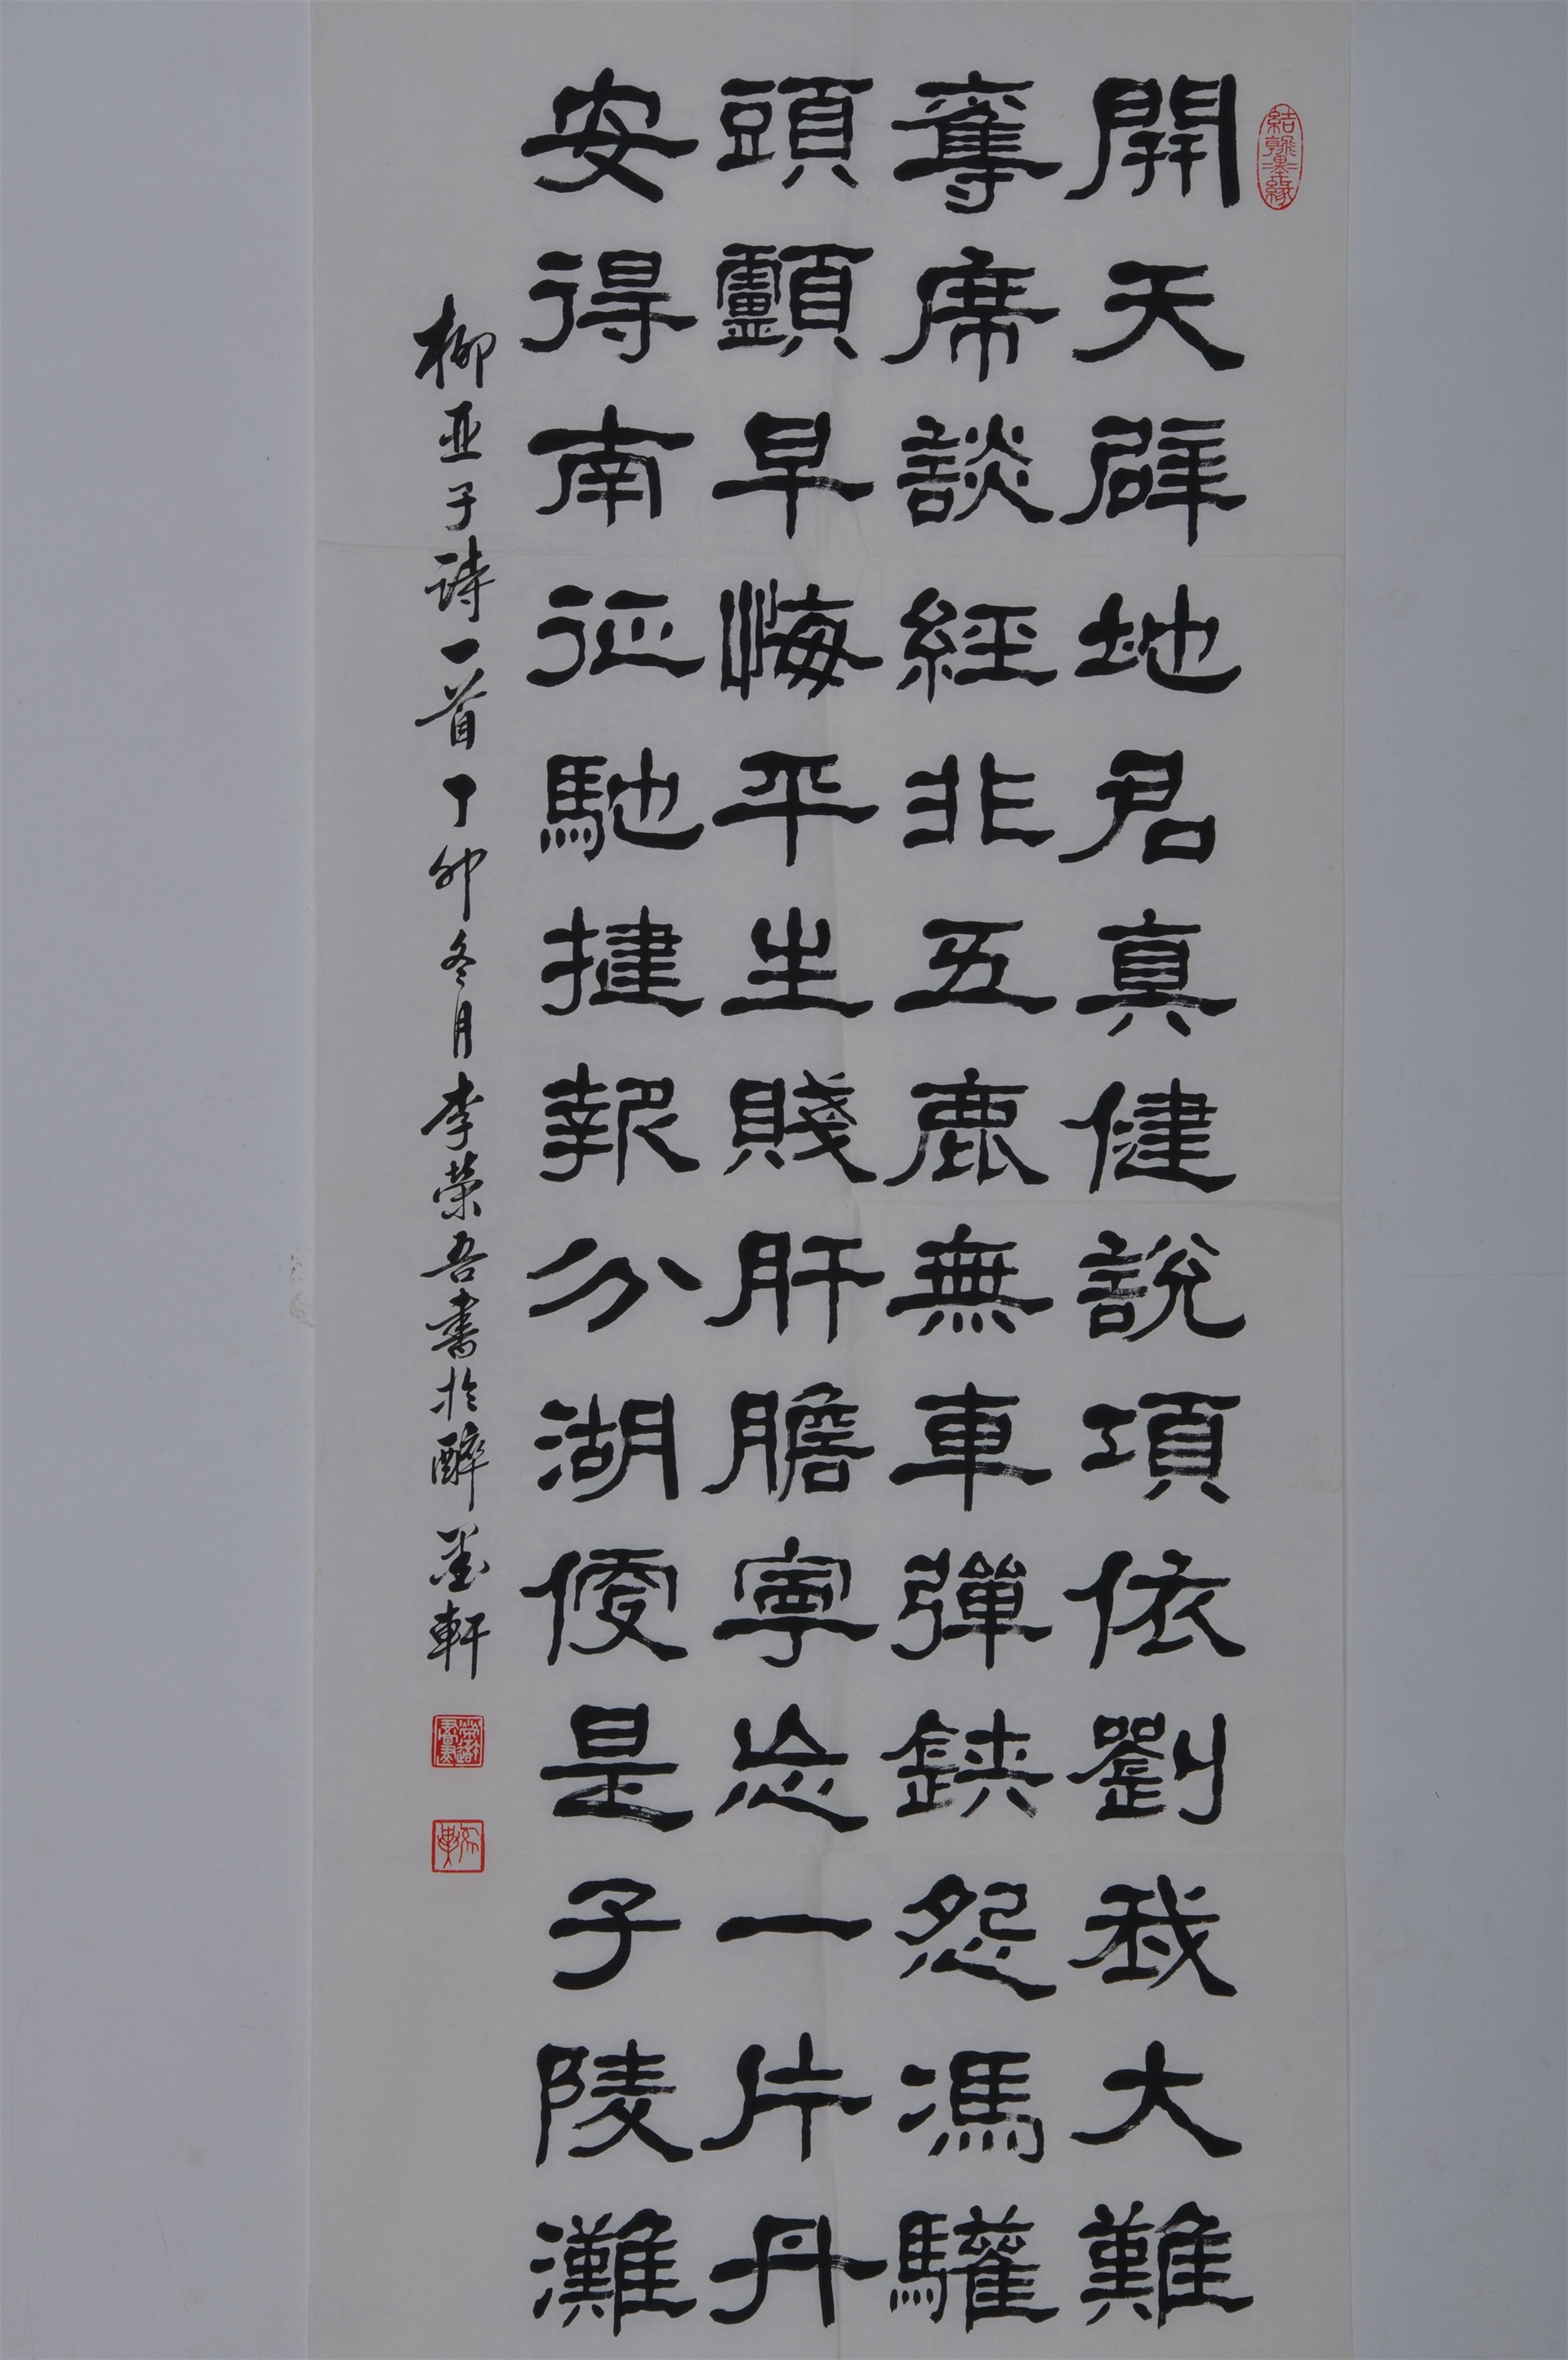 結翰墨緣
開天辟地君真健說項依劉我大難
奪席談經非五鹿無車彈鋏怨馮驩
頭顱早悔平生賤肝膽寧忘一片丹
安得南征馳捷報分湖便是子陵灘
柳亚子詩一首丁卯冬月李荣吾書於醉墨軒